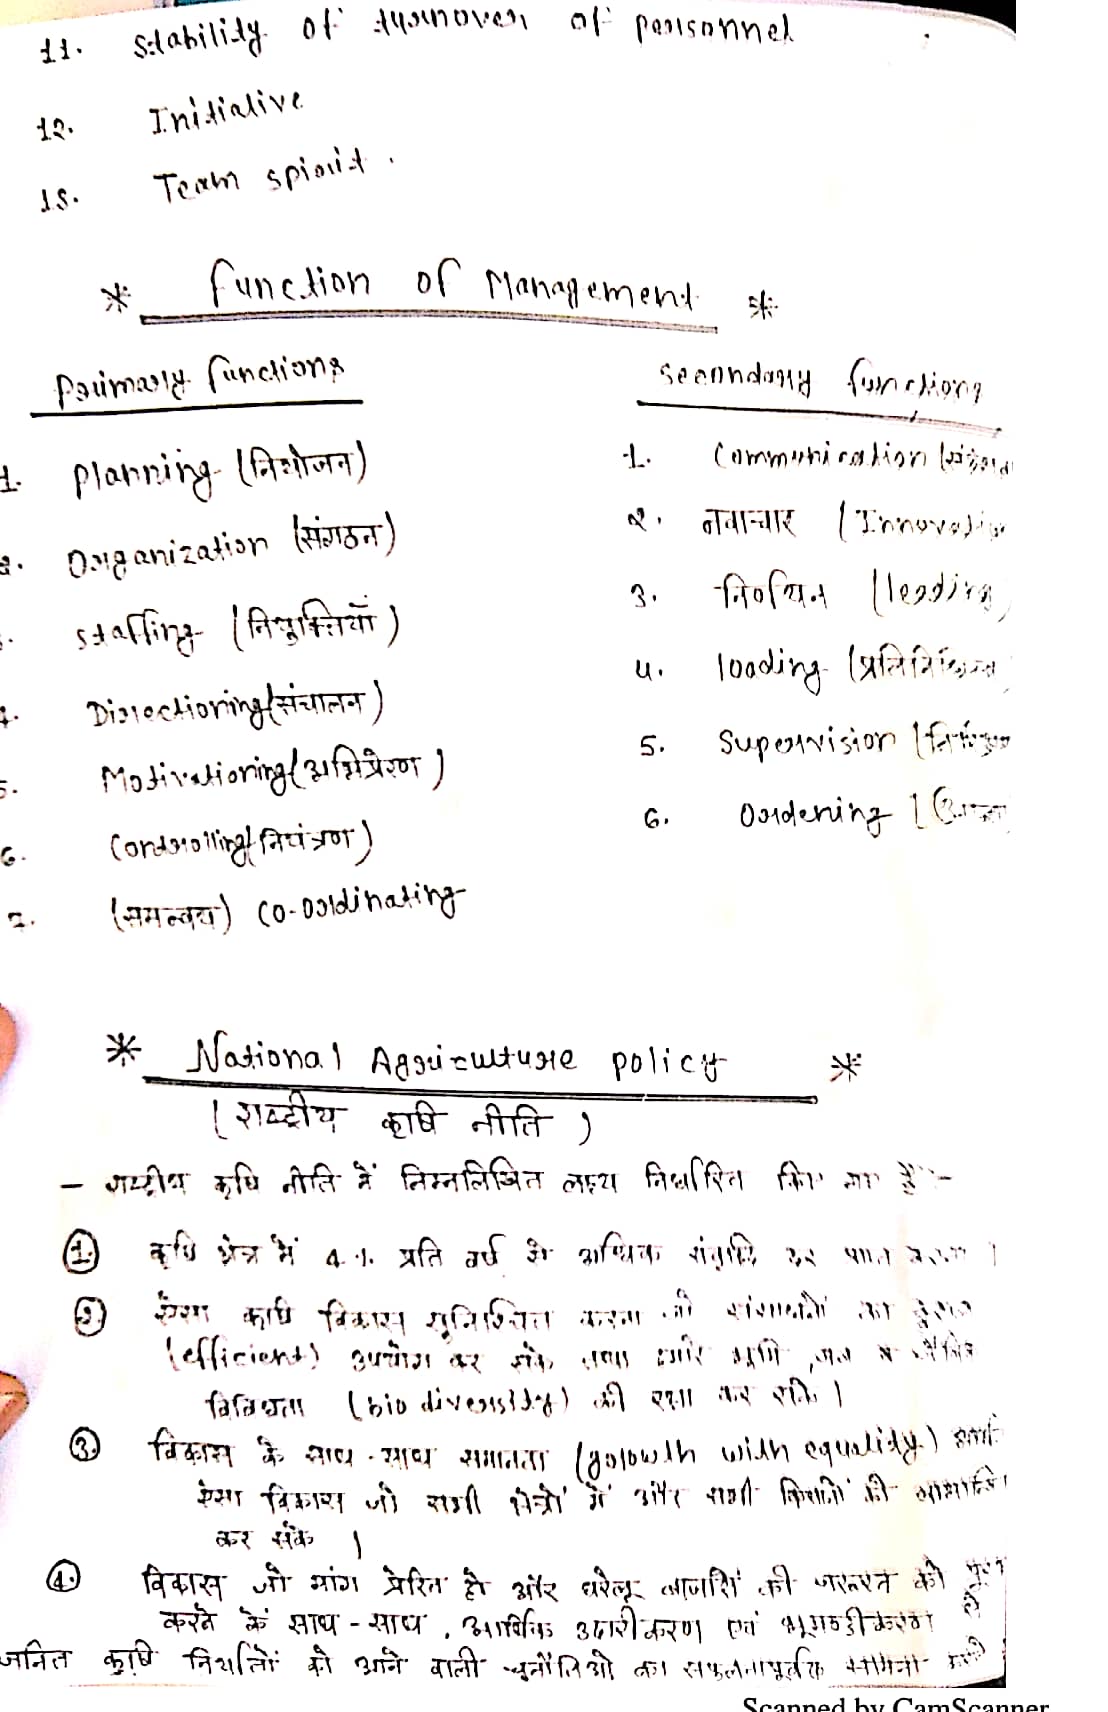 11. Stability of turnover of personnel
12. Initiative
13. Team spirit.
* Function of Management *
Primary functions
Secondary functions
1. Planning (नियोजन)
2. Organization (संगठन)
3. Staffing (नियुक्तियाँ)
4. Directioning (संचालन)
5. Motivationing (अभिप्रेरण)
6. Controlling (नियंत्रण)
7. (समन्वय) Co-ordinating
1. Communication
2. नवाचार (Innovation
3. (leading)
4. loading
5. Supervision
6. Ordering
* National Agriculture policy *
(राष्ट्रीय कृषि नीति)
- राष्ट्रीय कृषि नीति में निम्नलिखित लक्ष्य निर्धारित किए गए हैं :-
1. कृषि क्षेत्र में 4 % प्रति वर्ष से अधिक संवृद्धि दर प्राप्त करना ।
2. ऐसा कृषि विकास सुनिश्चित करना जो संसाधनों का कुशल
(efficient) उपयोग कर सके तथा हमारे भूमि, जल व जैविक
विविधता (bio diversity) की रक्षा कर सके ।
3. विकास के साथ-साथ समानता (growth with equality)
ऐसा विकास जो सभी क्षेत्रों में और सभी किसानों की
कर सके ।
4. विकास जो मांग प्रेरित हो और घरेलू बाजारों की जरूरत को पूरा
करने के साथ-साथ, आर्थिक उदारीकरण एवं भूमण्डलीकरण से
जनित कृषि निर्यातों को आने वाली चुनौतिओ का सफलतापूर्वक सामना करे
Scanned by CamScanner